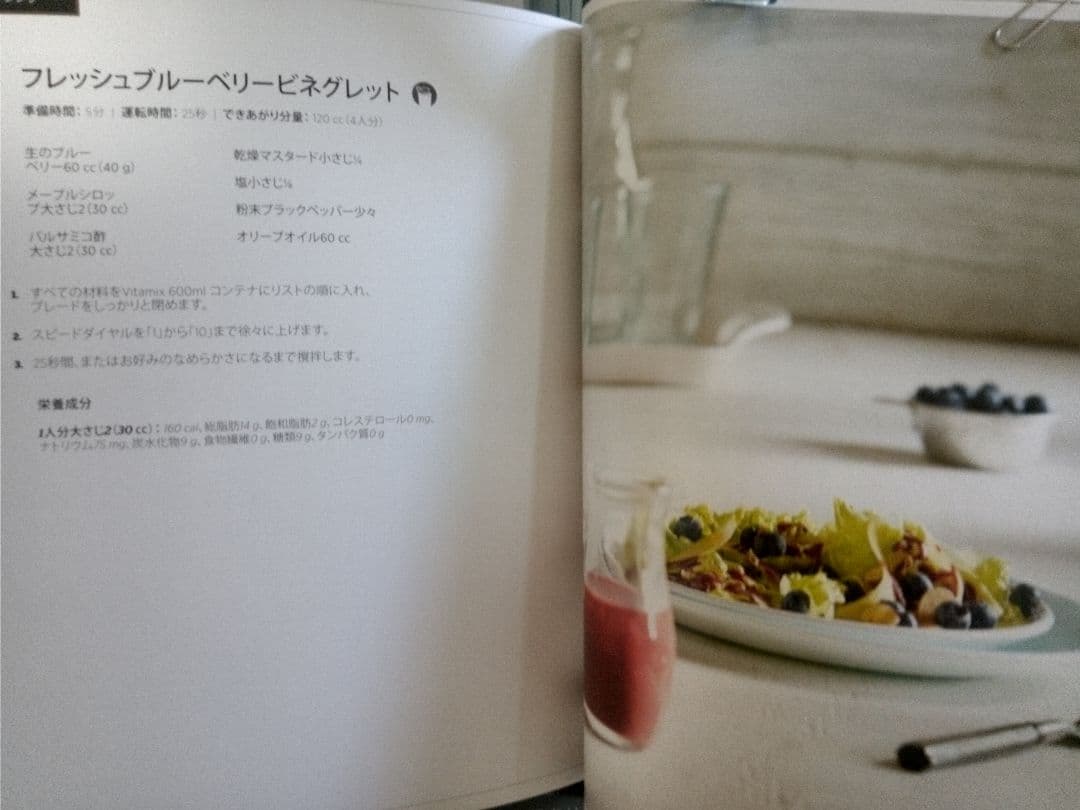 フレッシュブルーベリービネグレット
準備時間: 5分 | 運転時間: 25秒 | できあがり分量: 120 cc (4人分)
生のブルー
ベリー60 cc (40 g)
メープルシロッ
プ大さじ2 (30 cc)
バルサミコ酢
大さじ2 (30 cc)
乾燥マスタード小さじ¼
塩小さじ⅛
粉末ブラックペッパー少々
オリーブオイル60 cc
1. すべての材料をVitamix 600ml コンテナにリストの順に入れ、
ブレードをしっかりと閉めます。
2. スピードダイヤルを「1」から「10」まで徐々に上げます。
3. 25秒間、またはお好みのなめらかさになるまで撹拌します。
栄養成分
1人分大さじ2 (30 cc): 160 cal、総脂肪14 g、飽和脂肪2 g、コレステロール0 mg、
ナトリウム75 mg、炭水化物9 g、食物繊維0 g、糖類9 g、タンパク質0 g